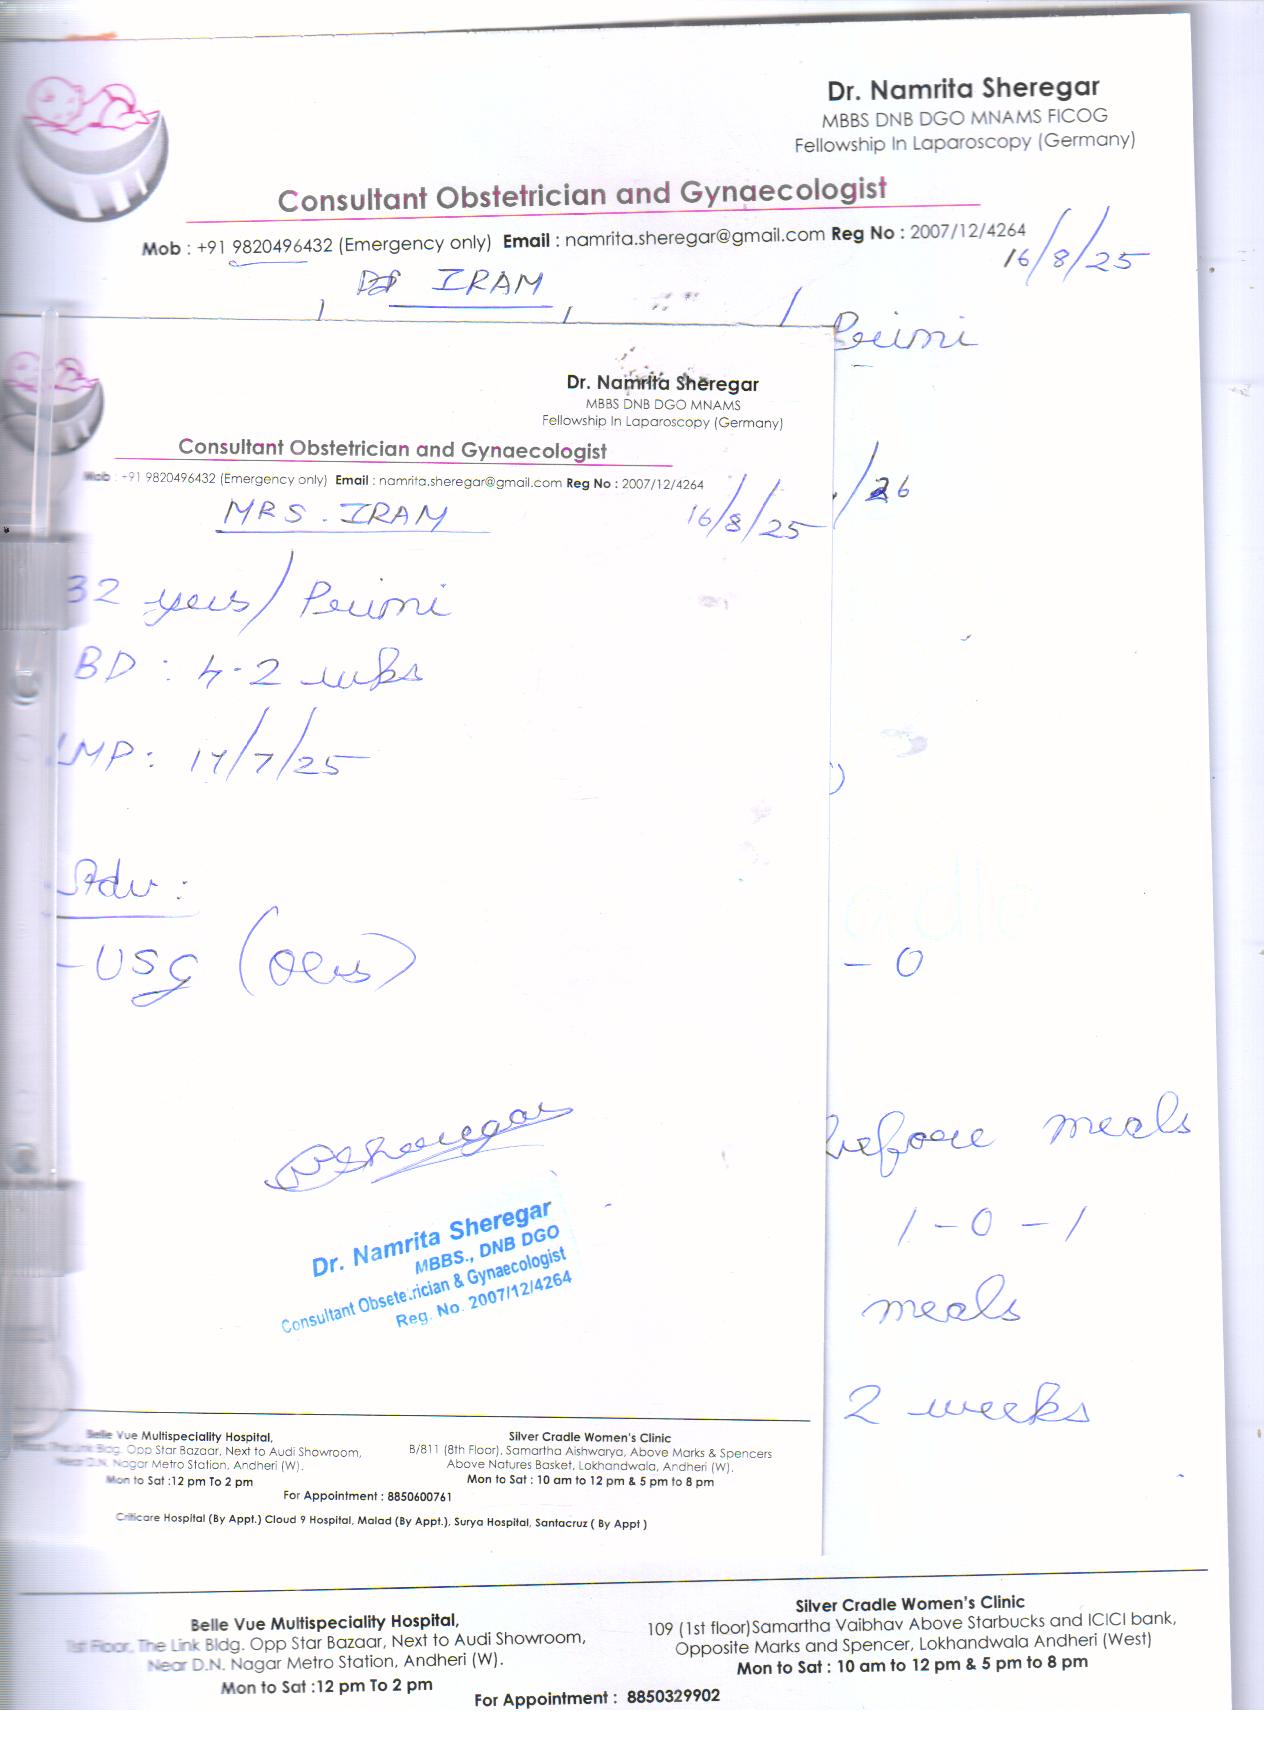 Dr. Namrita Sheregar
MBBS DNB DGO MNAMS FICOG
Fellowship In Laparoscopy (Germany)
Consultant Obstetrician and Gynaecologist
Mob : +91 9820496432 (Emergency only) Email : namrita.sheregar@gmail.com Reg No : 2007/12/4264
16/8/25
IRAM
Primi
Dr. Namrita Sheregar
MBBS DNB DGO MNAMS
Fellowship In Laparoscopy (Germany)
Consultant Obstetrician and Gynaecologist
Mob : +91 9820496432 (Emergency only) Email : namrita.sheregar@gmail.com Reg No : 2007/12/4264
MRS. IRAM
16/8/25
/26
32 years/Primi
BD : 4-2 wks
LMP : 14/7/25
Adv :
- USG (Obs)
- 0
before meals
1 - 0 - 1
meals
2 weeks
NSheregar
Dr. Namrita Sheregar
MBBS., DNB DGO
Consultant Obsetetrician & Gynaecologist
Reg. No. 2007/12/4264
Belle Vue Multispeciality Hospital,
Link Bldg. Opp Star Bazaar, Next to Audi Showroom,
Near D.N. Nagar Metro Station, Andheri (W).
Mon to Sat :12 pm To 2 pm
Silver Cradle Women's Clinic
B/811 (8th Floor), Samartha Aishwarya, Above Marks & Spencers
Above Natures Basket, Lokhandwala, Andheri (W).
Mon to Sat : 10 am to 12 pm & 5 pm to 8 pm
For Appointment : 8850600761
Criticare Hospital (By Appt.) Cloud 9 Hospital, Malad (By Appt.), Surya Hospital, Santacruz ( By Appt )
Belle Vue Multispeciality Hospital,
1st Floor, The Link Bldg. Opp Star Bazaar, Next to Audi Showroom,
Near D.N. Nagar Metro Station, Andheri (W).
Mon to Sat :12 pm To 2 pm
Silver Cradle Women's Clinic
109 (1st floor)Samartha Vaibhav Above Starbucks and ICICI bank,
Opposite Marks and Spencer, Lokhandwala Andheri (West)
Mon to Sat : 10 am to 12 pm & 5 pm to 8 pm
For Appointment : 8850329902